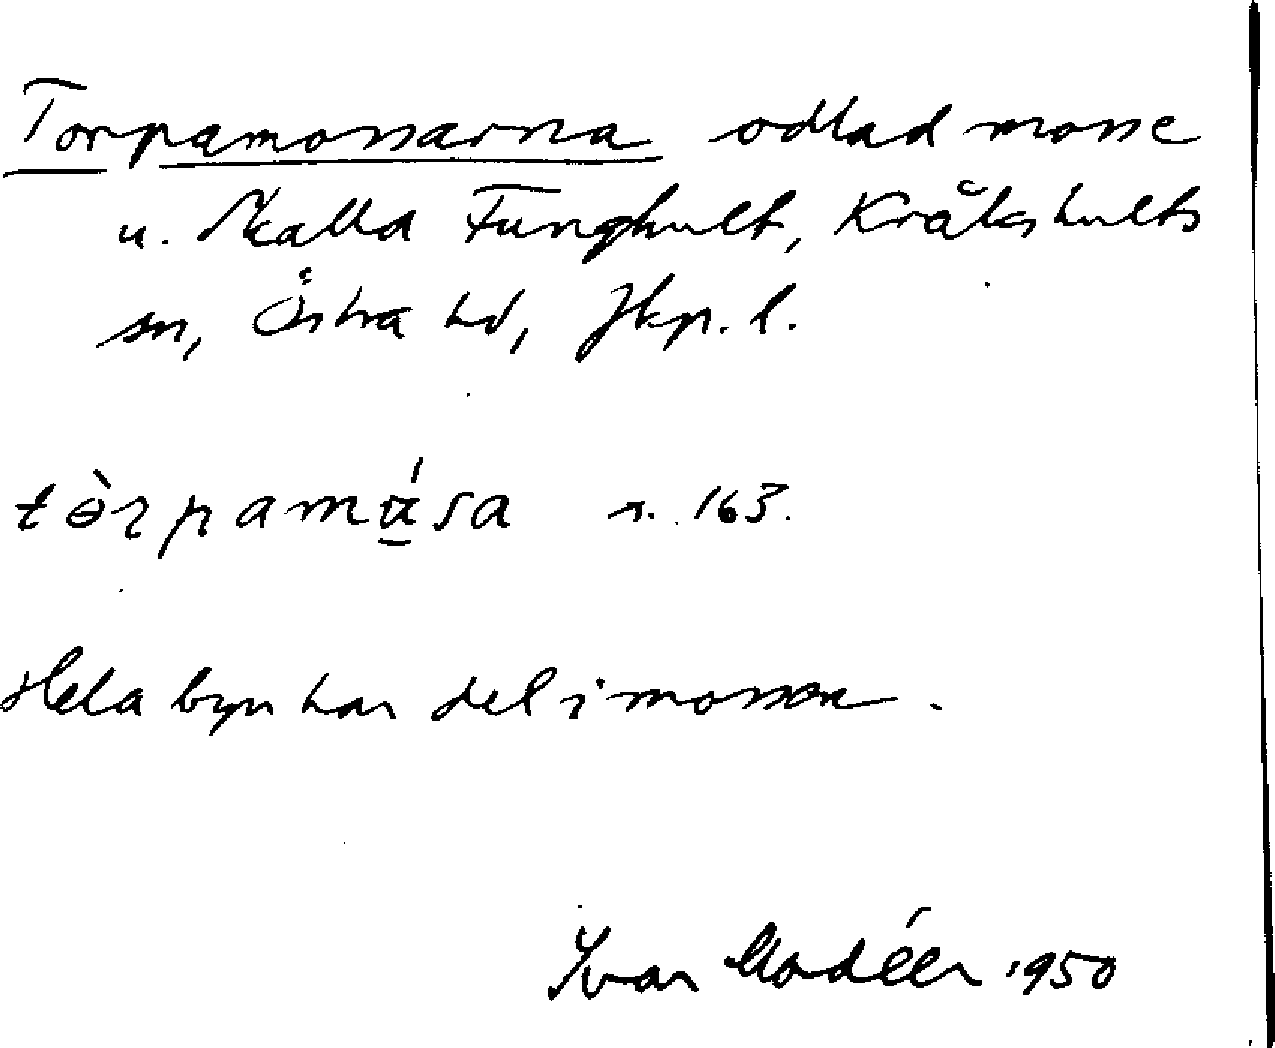 Torpamossarna odlad mosse
u. Skalla Funghult, Kråkshults
sn, Östra hd, Jkp. l.
tɵ̀rpamά̱sa s. 163.
Hela byn har del i mossen.
Ivar Modéer 1950